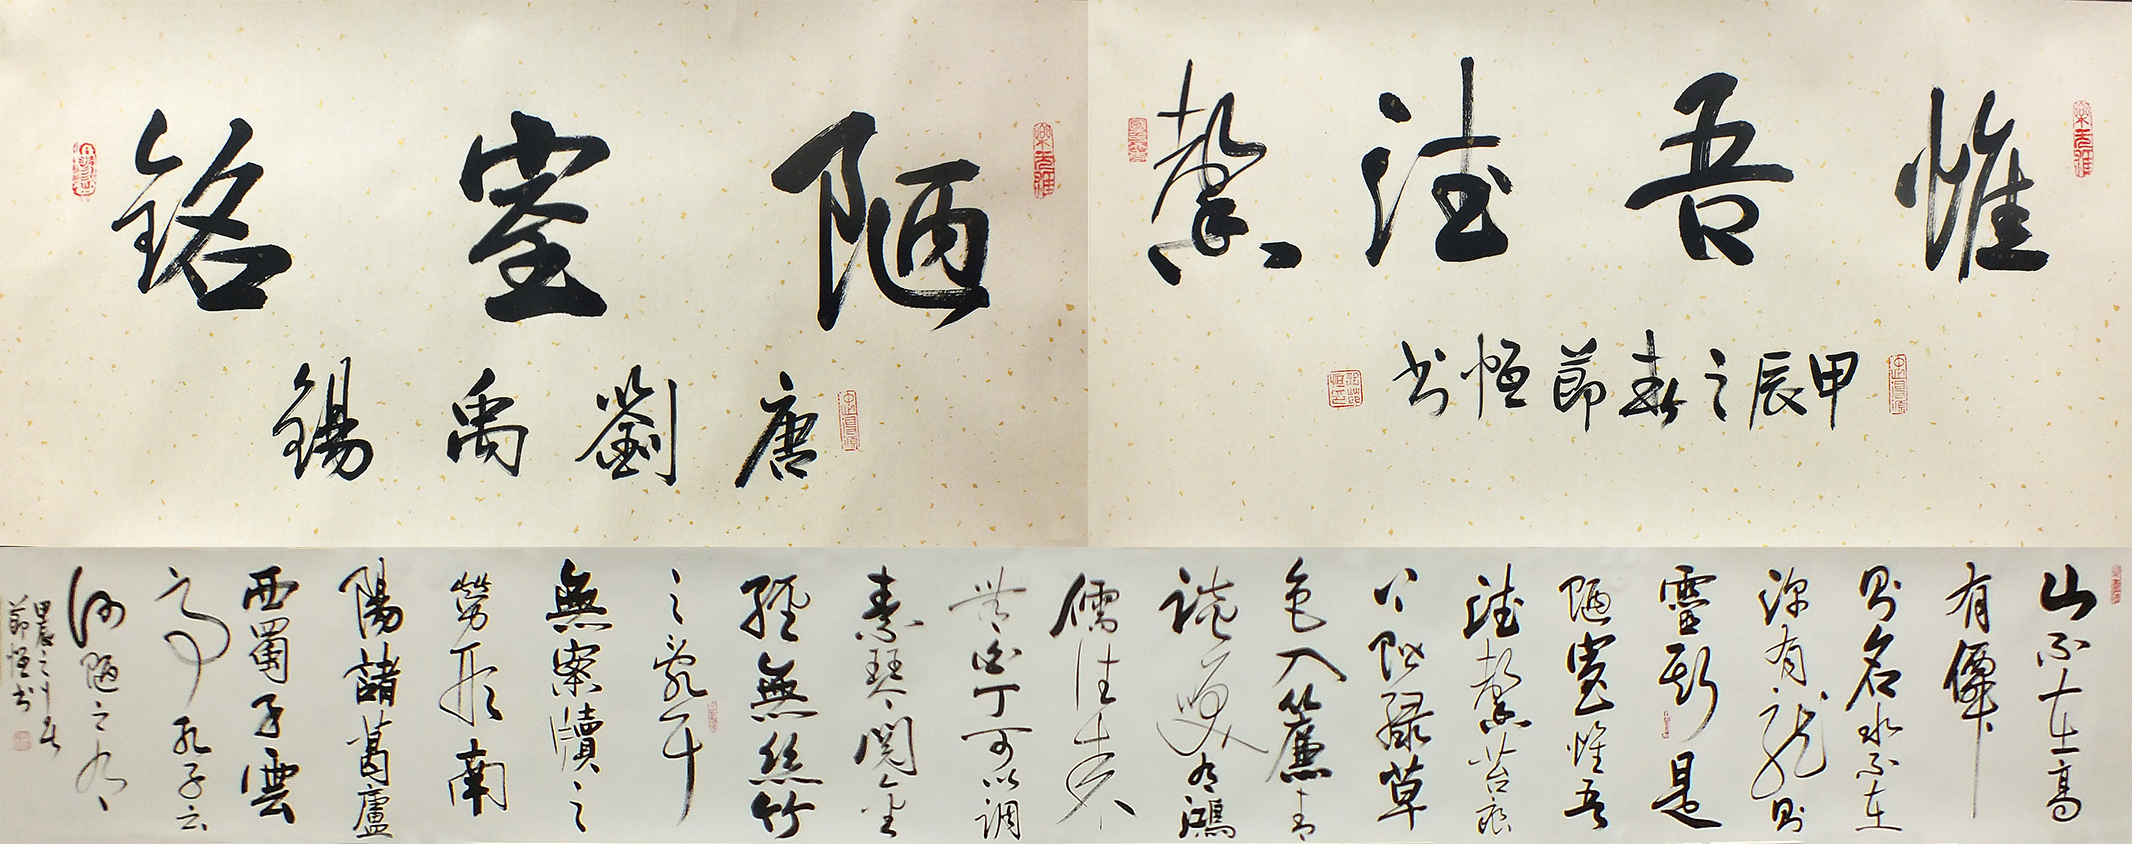 惟吾德馨
甲辰之春節恒书
陋室銘
唐劉禹錫
山不在高
有僊
則名水不在
深有龍則
靈斯是
陋室惟吾
德馨苔痕
上階緑草
色入簾青
談笑有鴻
儒往來
無白丁可以調
素琴閱金
經無絲竹
之亂耳
無案牘之
勞形南
陽諸葛廬
西蜀子雲
亭孔子云
何陋之有
甲辰之春
節恒书